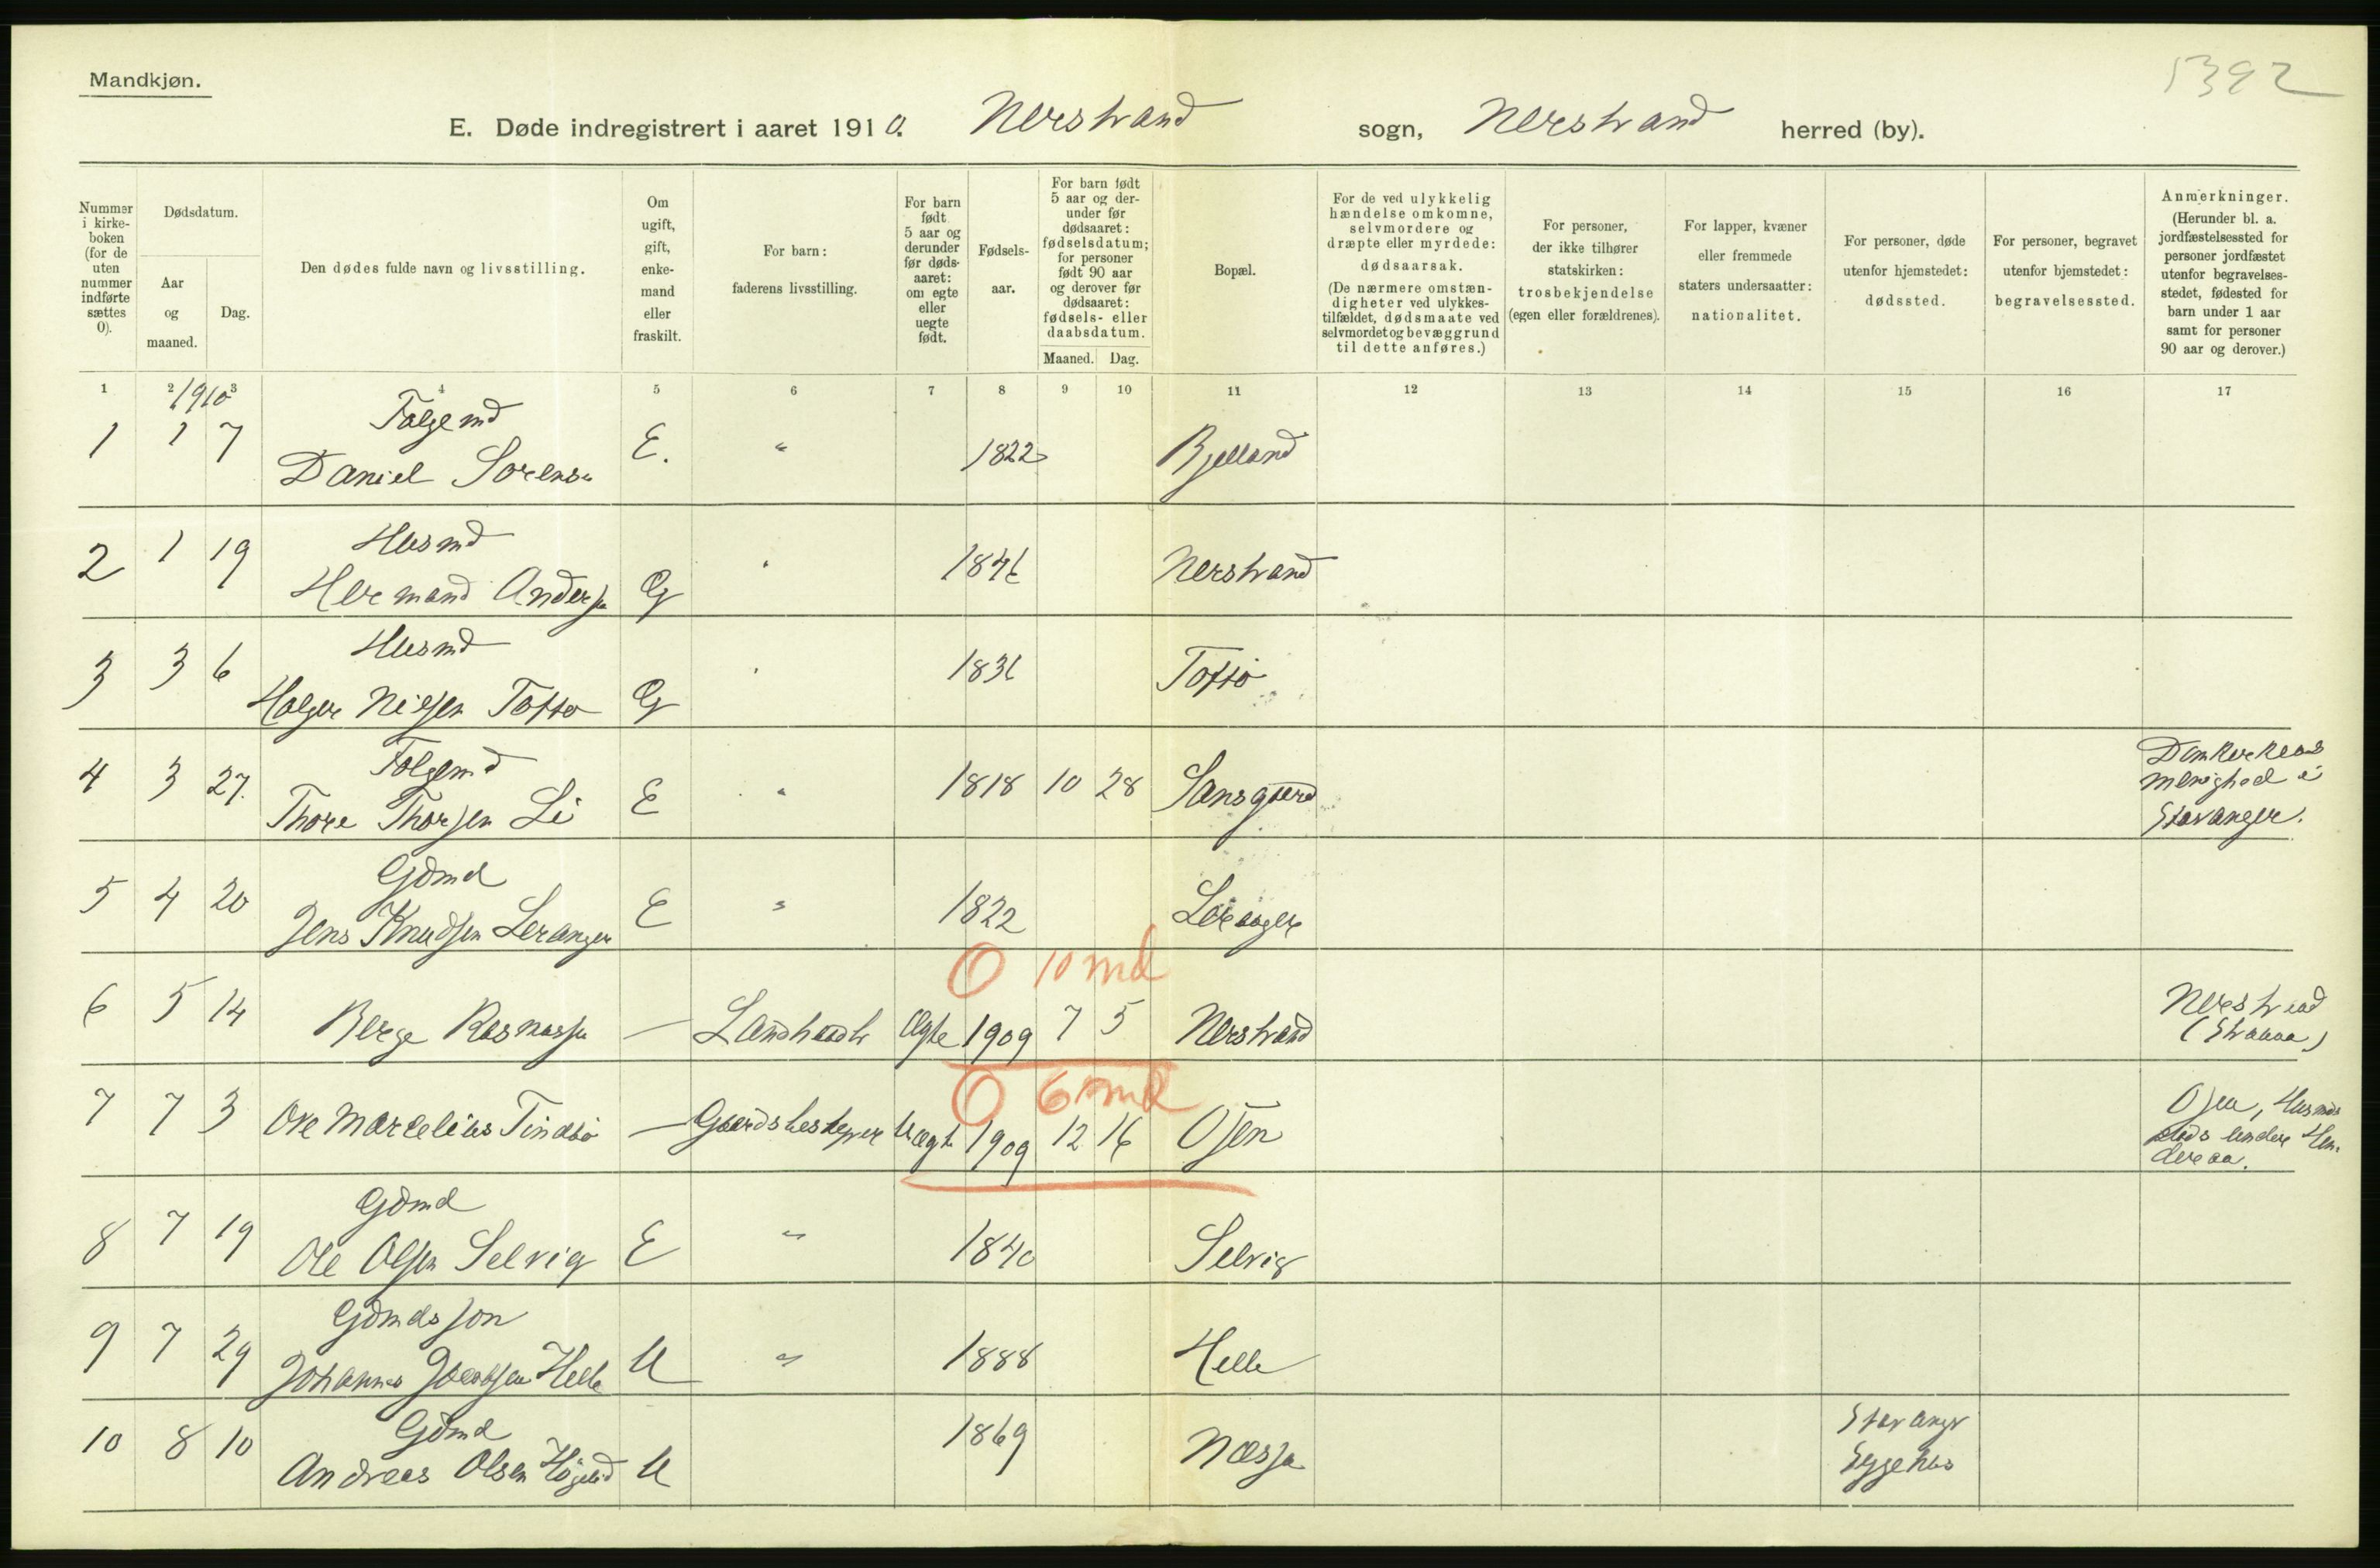 Mandkjøn.
5392
E. Døde indregistrert i aaret 1910. Nerstrand sogn, Nerstrand herred (by).
Nummer i kirke-boken (for de uten nummer indførte sættes 0).
Dødsdatum.
Aar og maaned.
Dag.
Den dødes fulde navn og livsstilling.
Om ugift, gift, enke-mand eller fraskilt.
For barn: faderens livsstilling.
For barn født 5 aar og derunder før døds-aaret: om egte eller uegte født.
Fødsels-aar.
For barn født 5 aar og der-under før dødsaaret: fødselsdatum; for personer født 90 aar og derover før dødsaaret: fødsels- eller daabsdatum.
Maaned. Dag.
Bopæl.
For de ved ulykkelig hændelse omkomne, selvmordere og dræpte eller myrdede: dødsaarsak. (De nærmere omstæn-digheter ved ulykkes-tilfældet, dødsmaate ved selvmordet og bevæggrund til dette anføres.)
For personer, der ikke tilhører statskirken: trosbekjendelse (egen eller forældrenes).
For lapper, kvæner eller fremmede staters undersaatter: nationalitet.
For personer, døde utenfor hjemstedet: dødssted.
For personer, begravet utenfor hjemstedet: begravelsessted.
Anmerkninger. (Herunder bl. a. jordfæstelsessted for personer jordfæstet utenfor begravelses-stedet, fødested for barn under 1 aar samt for personer 90 aar og derover.)
1 2 3 4 5 6 7 8 9 10 11 12 13 14 15 16 17
1910
Følgemd
1 1 7 Daniel Sorensn E. " 1822 Bjelland
Husmd
2 1 19 Hermand Andersn G " 1846 Nerstrand
Husmd
3 3 6 Holger Nielsen Toftø G " 1836 Toftø
Folgemd
4 3 27. Thore Thorsen Li E " 1818 10 28 Sansgaard
menighed i
Stavanger.
Gdmd
5 4 20 Jens Knudsen Leranger E " 1822 Leranger
0 10 md
6 5 14 Berge Rasmussn — Landhandlr Ægte 1909 7 5 Nerstrand
Nerstrand
(Stranda)
0 6 md
7 7 3 Ove Marcelius Tindsø — Gaardsbestyrer Uægte 1909 12 16 Osen
Osen, Husmds
plads under Hin-
deraa.
Gdmd
8 7 19 Ole Olsen Selvig E " 1840 Selvig
Gdmds søn
9 7 29 Johannes Jacobsen Helle U " 1888 Helle
Gdmd
10 8 10 Andreas Olsen U 1869 Næssa
Stavangr
Sygehus